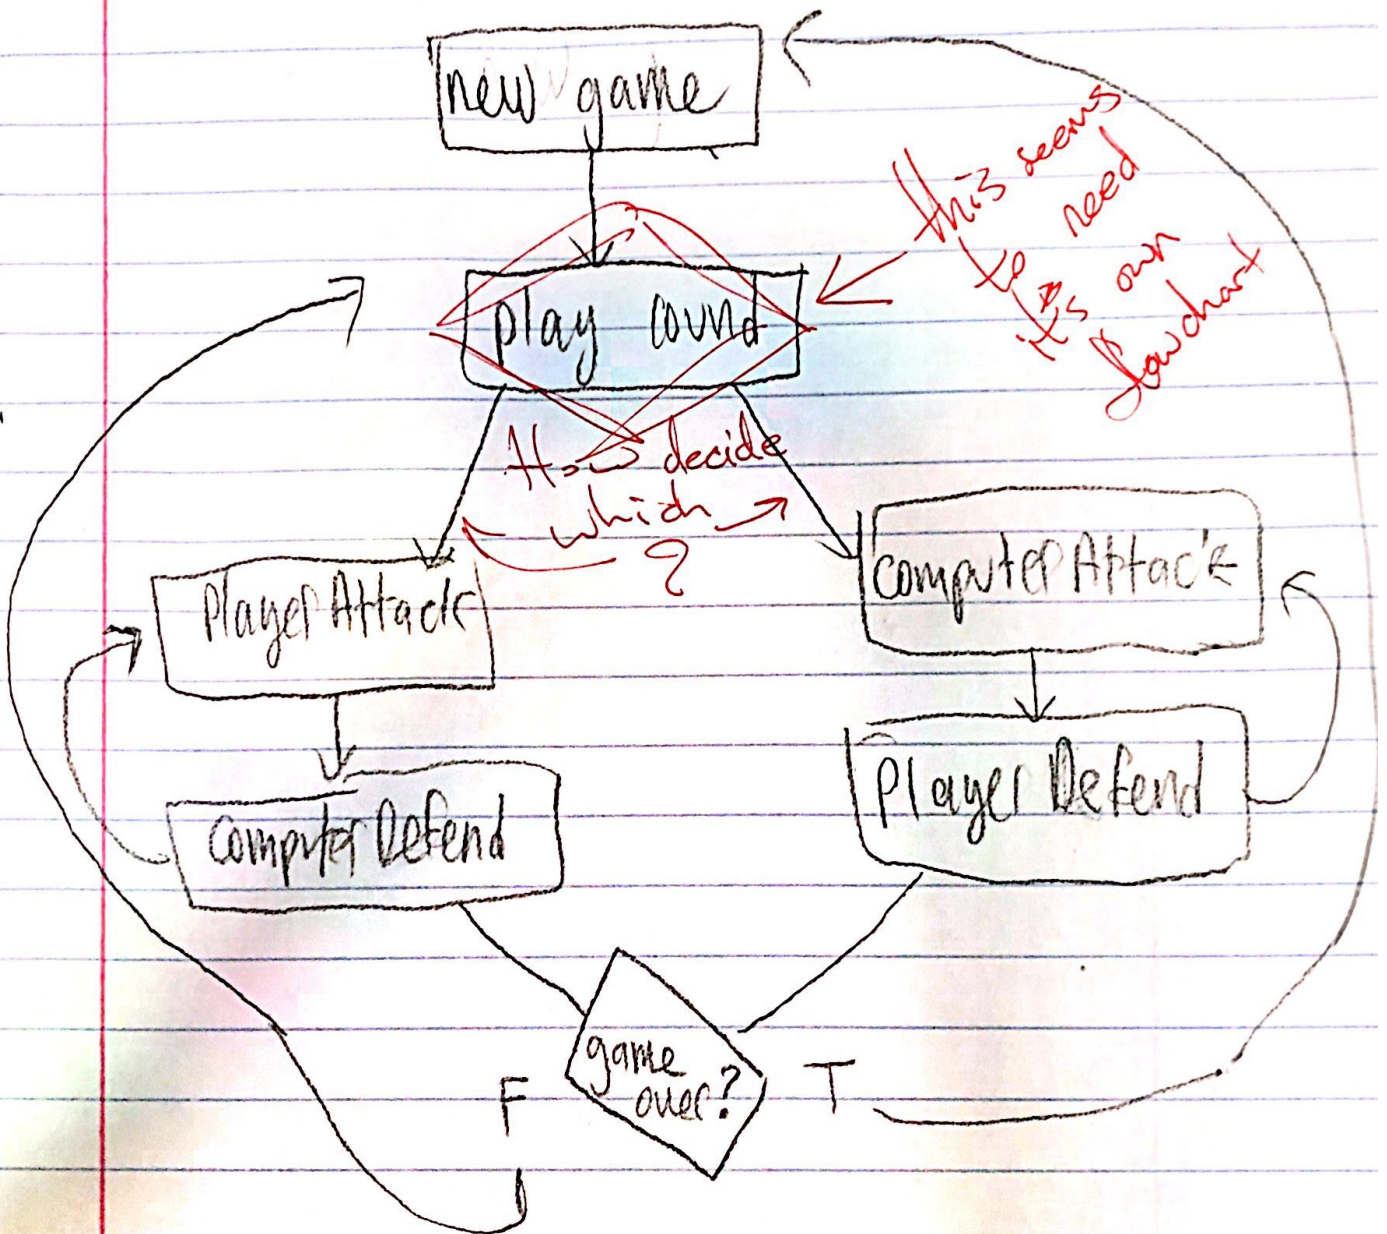 new game
this seems
to need
it's own
flowchart
play round
How decide
which
?
PlayerAttack
computerAttack
computerDefend
PlayerDefend
game
over?
F
T